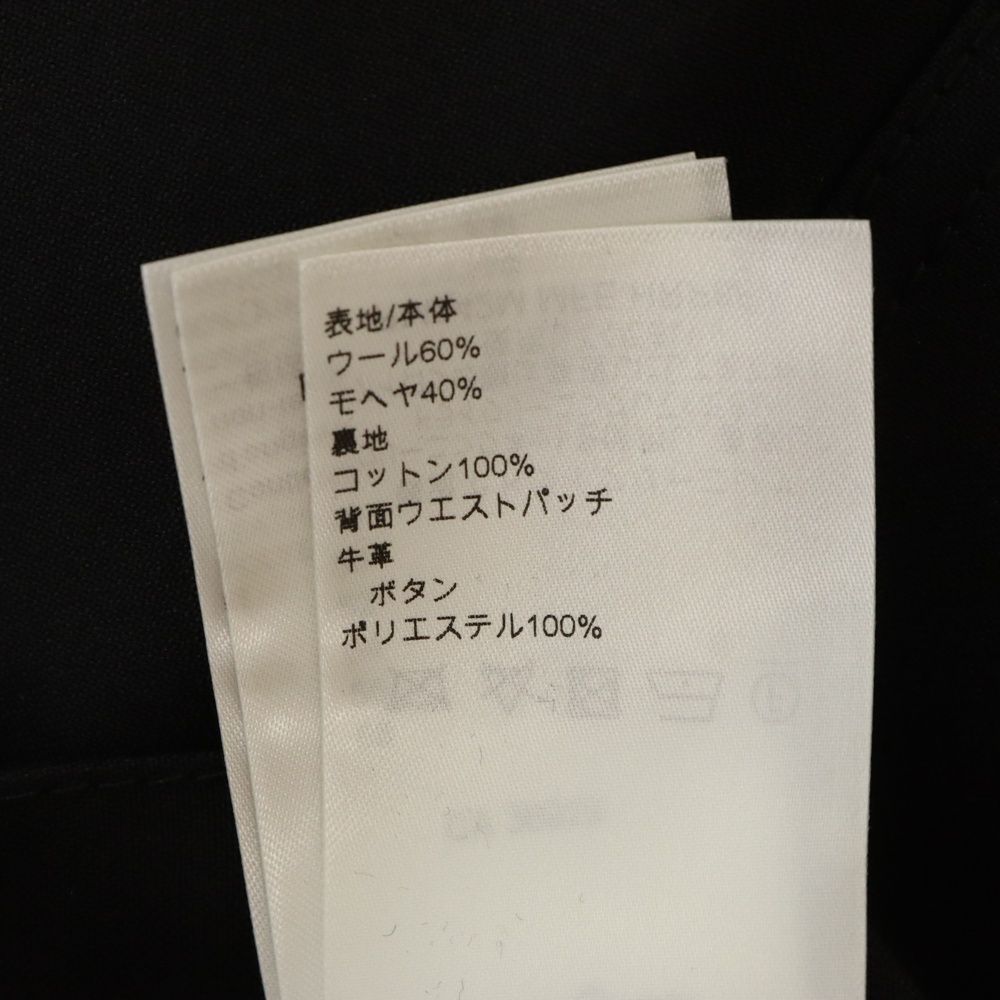 表地/本体
ウール60%
モヘヤ40%
裏地
コットン100%
背面ウエストパッチ
牛革
ボタン
ポリエステル100%